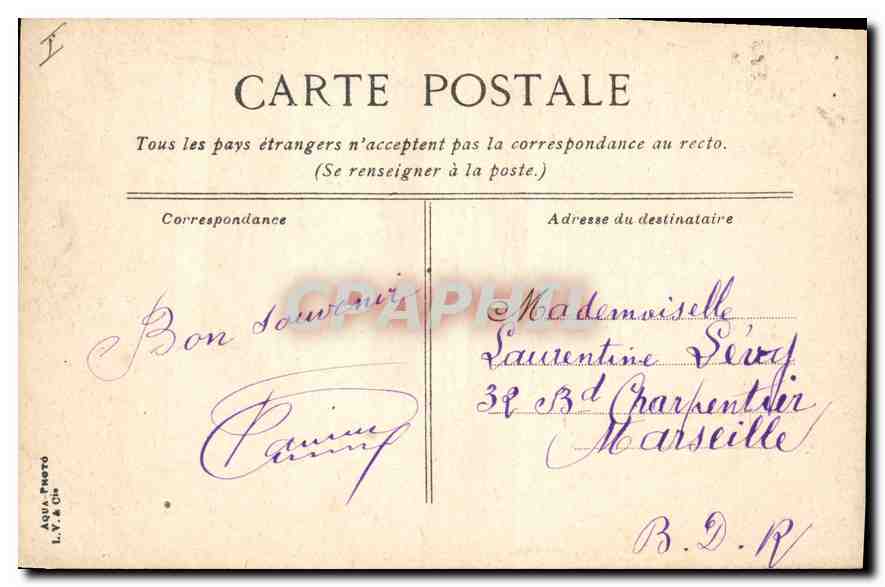 CARTE POSTALE
Tous les pays étrangers n'acceptent pas la correspondance au recto.
(Se renseigner à la poste.)
Correspondance
Bon souvenir
Adresse du destinataire
Mademoiselle
Laurentine Lévy
32 Bd Charpentier
Marseille
B. D. R
AQUA-PHOTO
L. V. & Cie
CPAPHIL